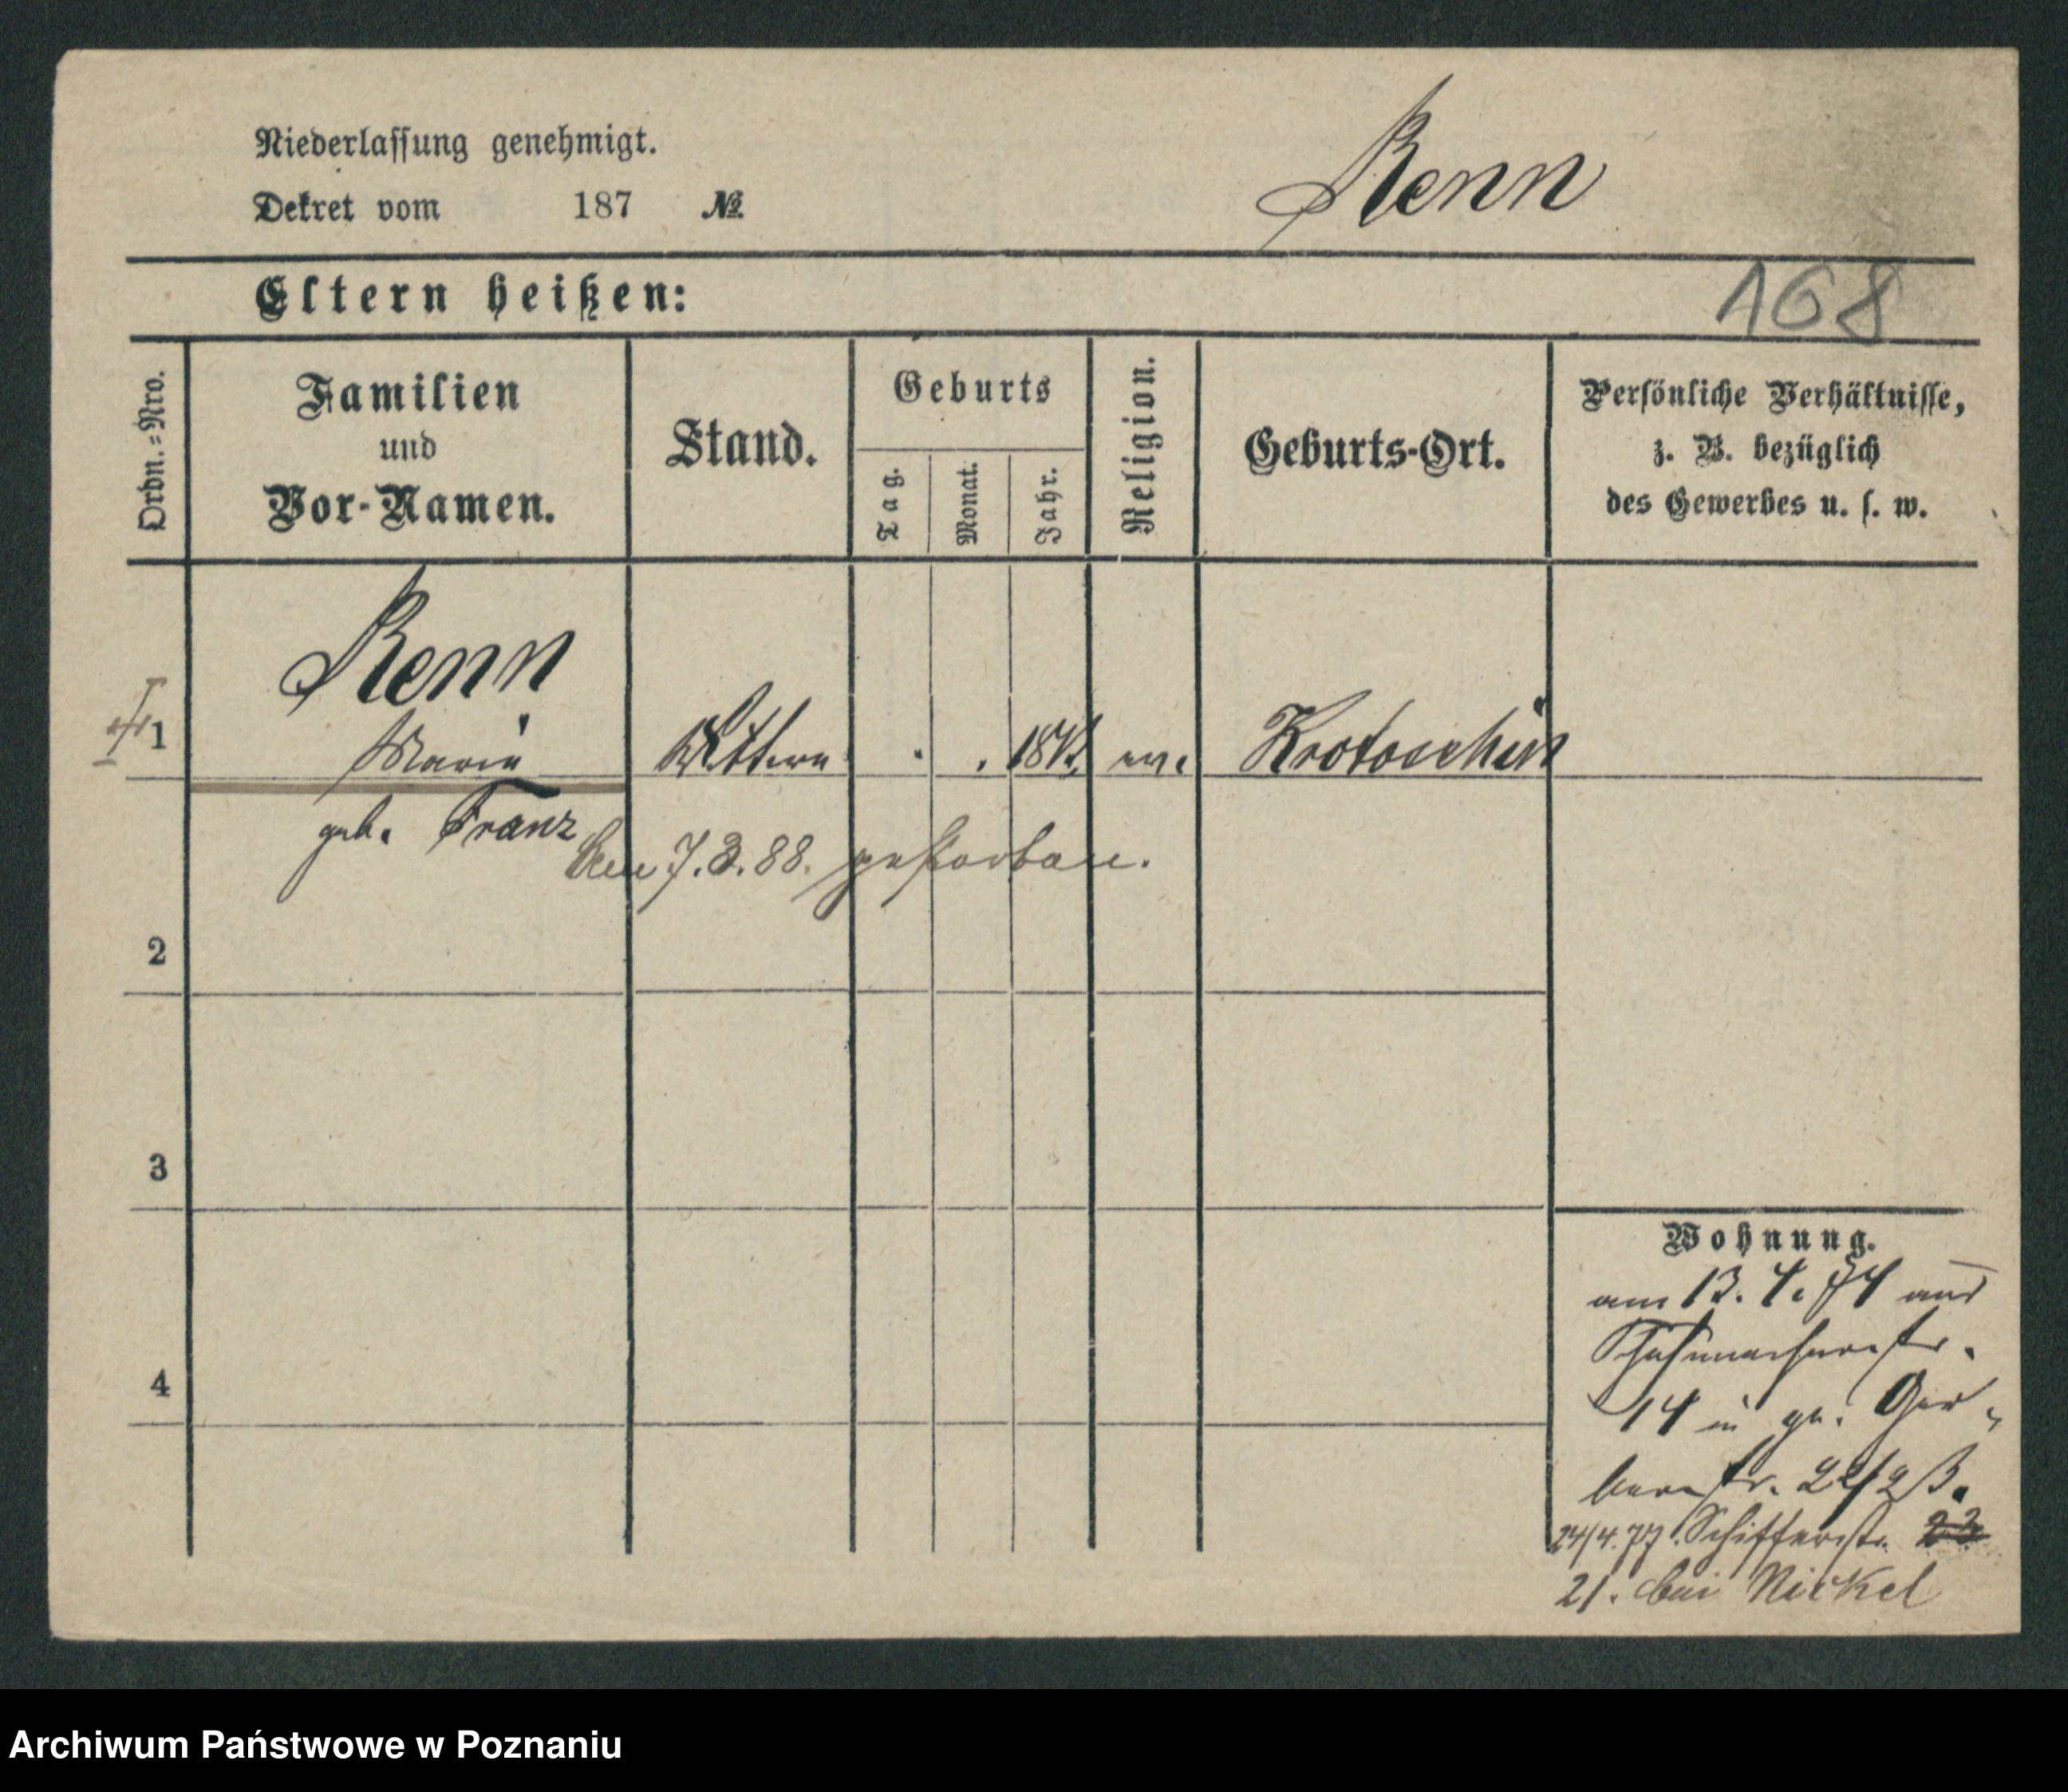 Niederlassung genehmigt.
Dekret vom 187 №
Renn
Eltern heißen:
168
Ordn.=Nro.
Familien
und
Vor-Namen.
Stand.
Geburts
Tag.
Monat.
Jahr.
Religion.
Geburts-Ort.
Persönliche Verhältnisse,
z. B. bezüglich
des Gewerbes u. s. w.
Renn
1 Marie Wittwe ev. Krotoschin
geb. Franz
den 7.3.88. gestorben.
2
3
4
Wohnung.
am 13. 4. 74 aus
Schuhmacherstr.
14 in gr. Ger-
berstr. 22/23.
24/4. 77. Schifferstr. 23
21. bei Nickel
Archiwum Państwowe w Poznaniu